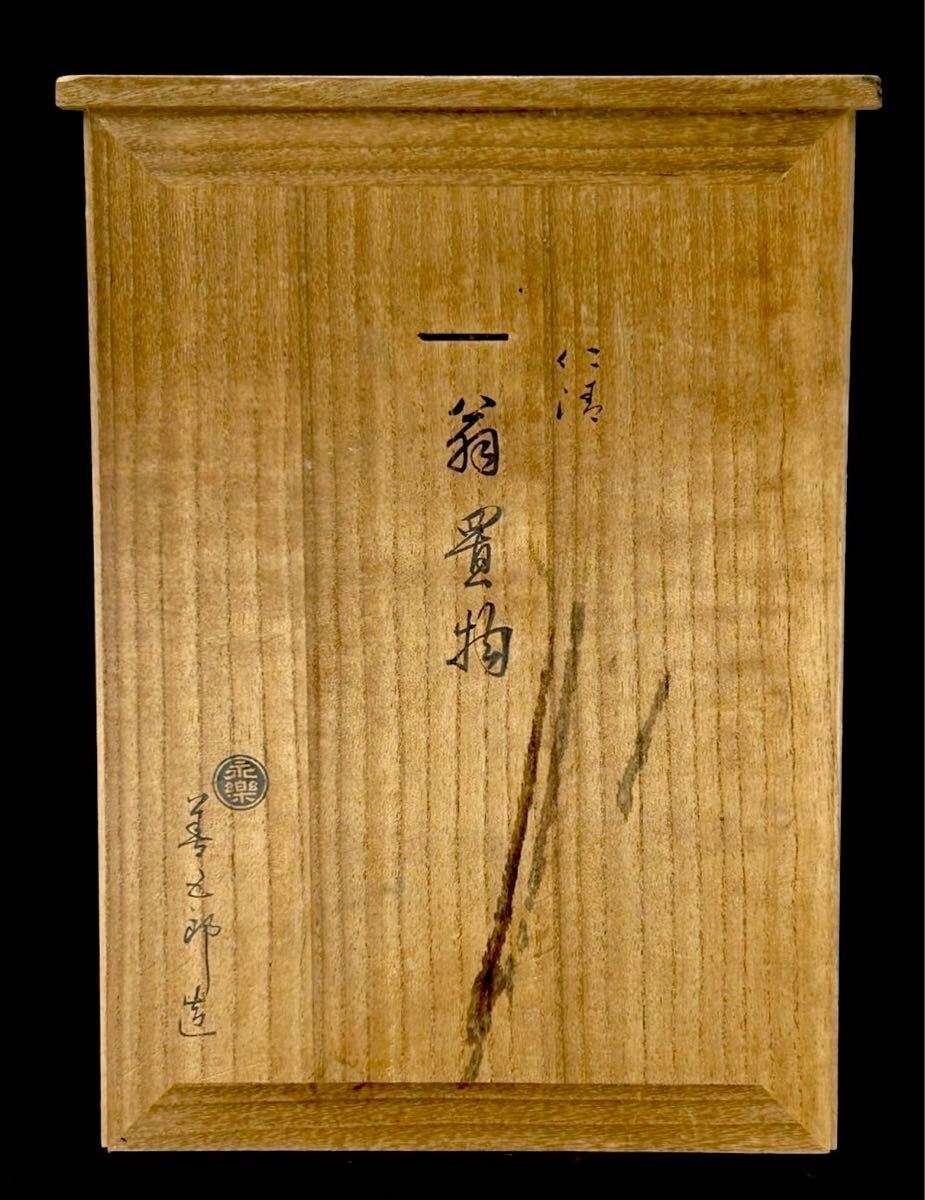 仁清
一 翁置物
永樂
善五郎造